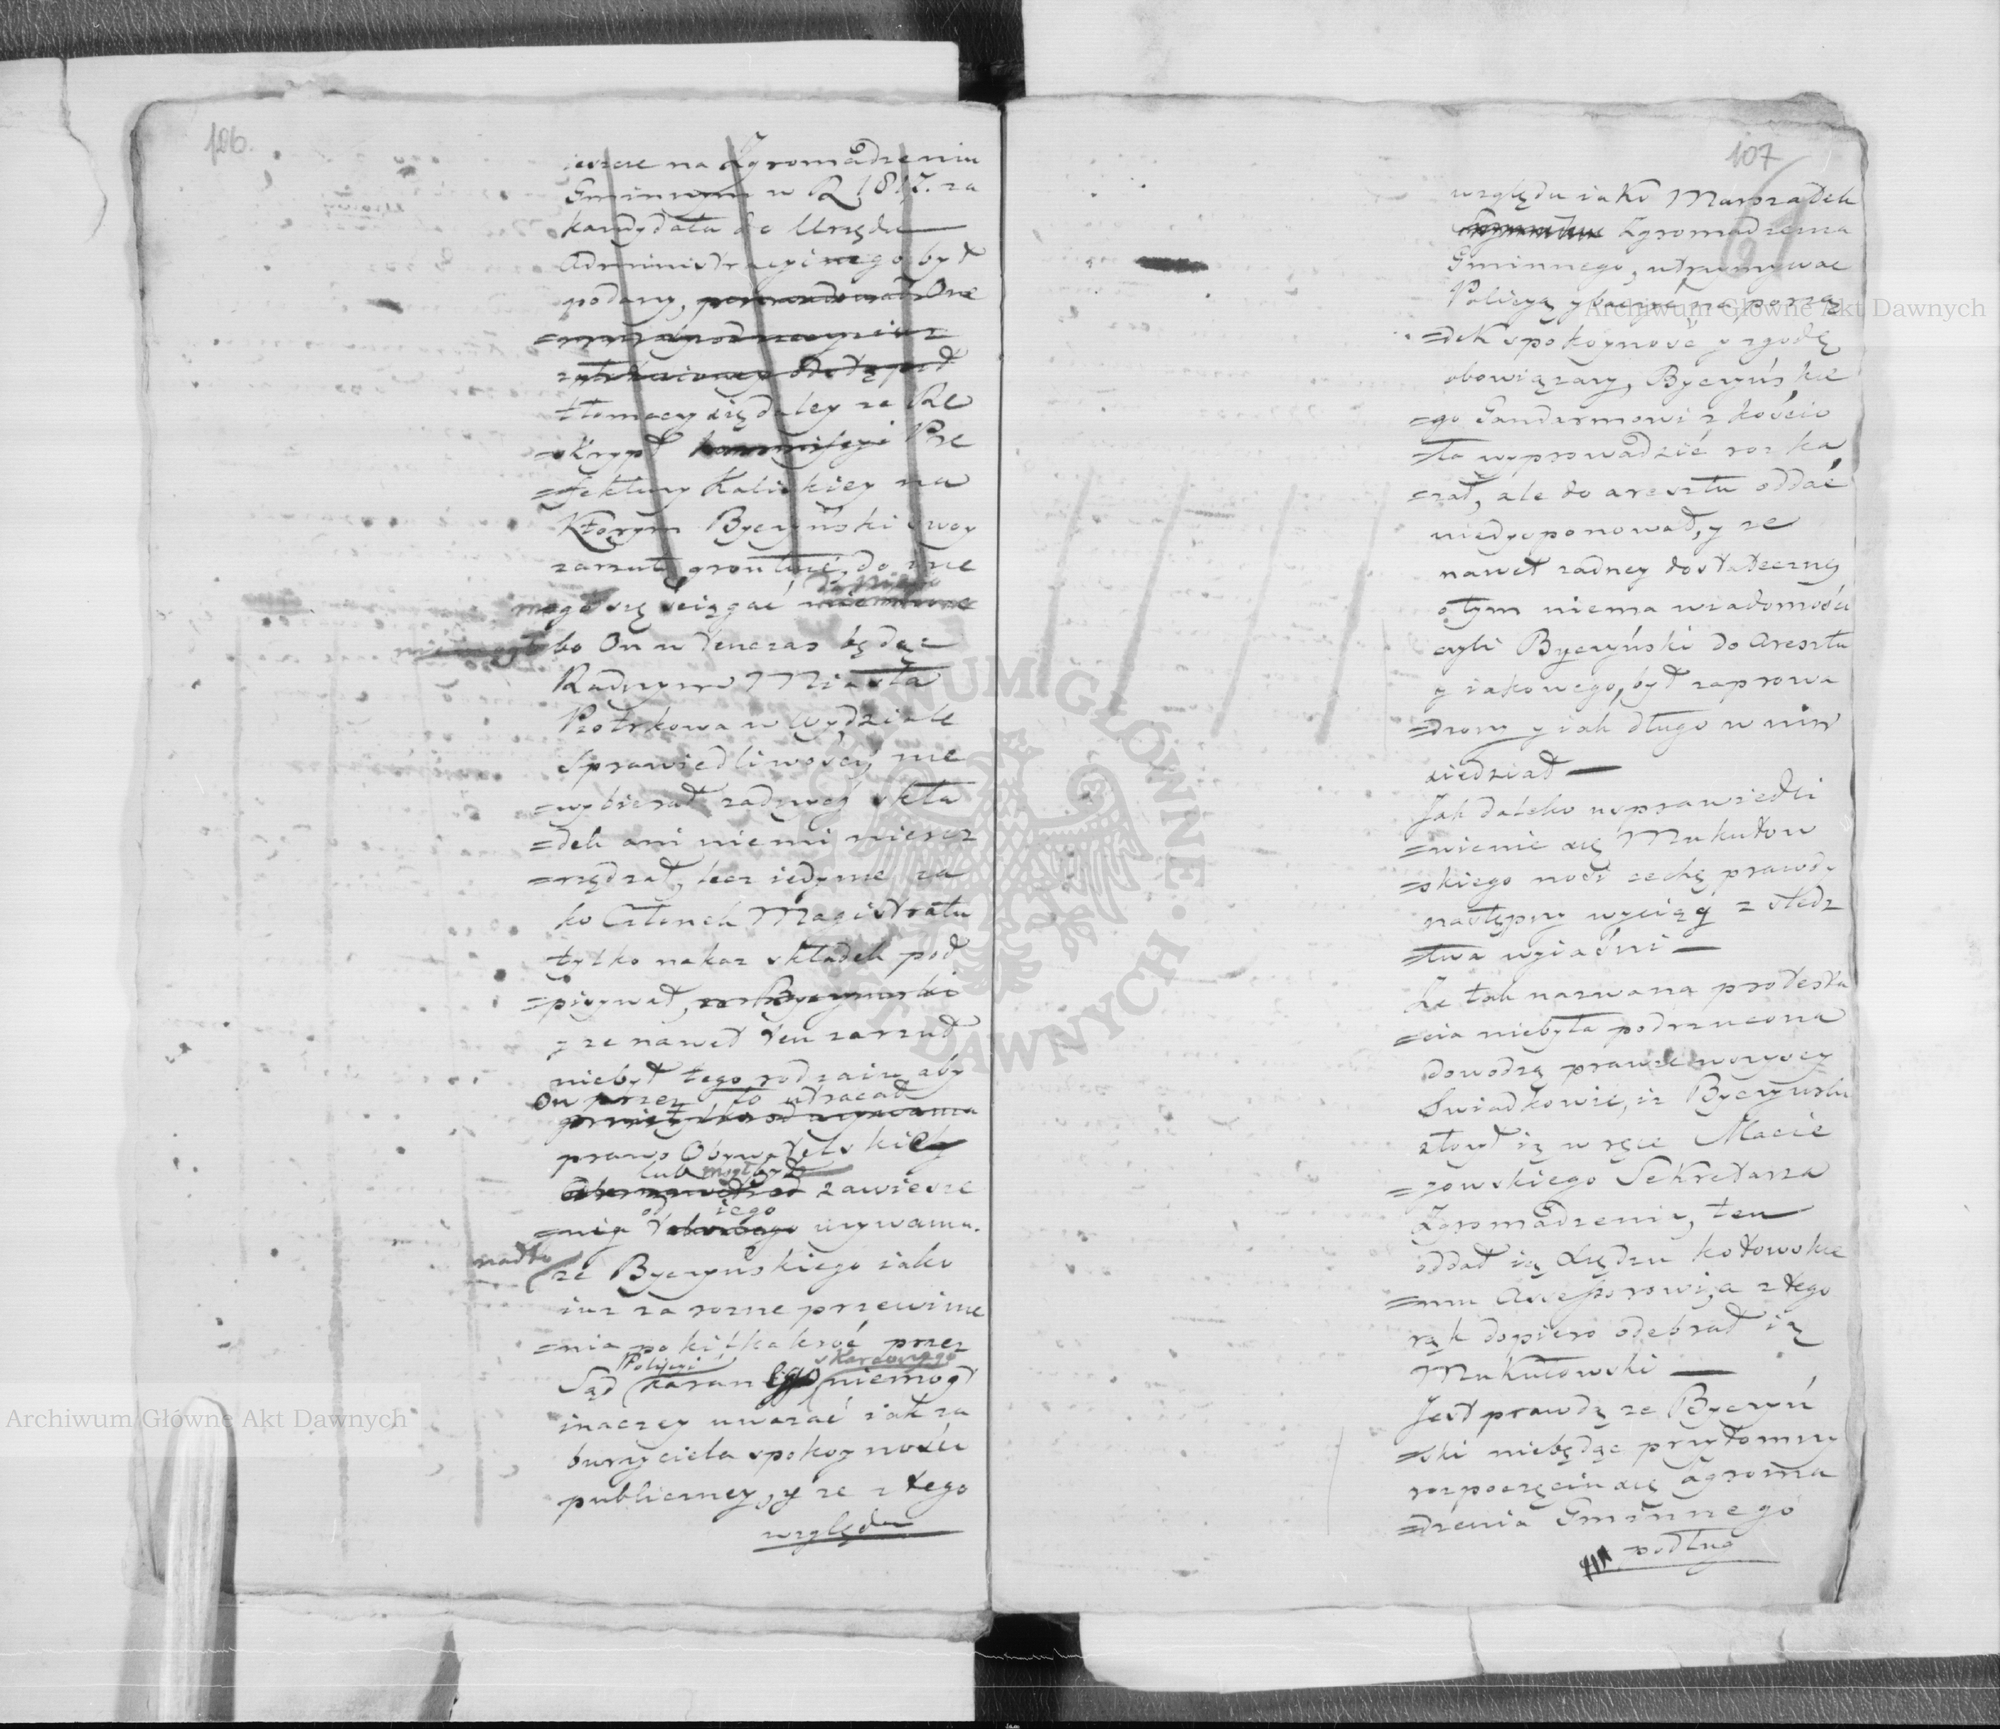 106.
ieszcze na Zgromadzeniu
Gminnym w R. 1817. za
kandydata do Urzędu
Administracyinego był
podany,
tłomaczy się daley że Re
=skrypt Pre
=fektury Kaliskiey na
Którym Byczyński swoy
zarzut gruntuie, do nie
mogł się sciągać
do niego
bo On w tenczas będąc
Radnym Miasta
Piotrkowa w Wydziale
Sprawiedliwości nie
=wybierał żadnych skła
=dek ani niemi nieroz
=rządzał, lecz iedynie ia
ko Członek Magistratu
tylko nakaz składek pod
=pisywał,
y że nawet ten zarzut
niebył tego rodzaiu aby
On przez to utracał
prawo Obywatelskie
lub mogł być
zawiesze
od iego
=nia używania.
nadto
że Byczyńskiego iako
iuż za rozne przewinie
=nia po kilkakroć przez
Policyi skarconego
Sąd karanego niemogł
inaczey uważać iak za
burzyciela spokoyności
publiczney, y że z tego
względu
107
względu iako Marszałek
Zgromadzenia
Gminnego, utrzymywać
Policyą y baczyć na porzą
=dek spokoyność y zgodę
obowiązany, Byczyńskie
=go Żandarmowi z kościo
=ła wyprowadzić rozka
=zał, ale do aresztu oddać
niedysponował, y że
nawet żadney dostateczney
o tym niema wiadomości
czyli Byczyński do aresztu
y iakowego, był zaprowa
=dzony y iak długo w nim
siedział —
Jak daleko usprawiedli
=wienie się Mukułow
=skiego nosi cechę prawdy
następny wyciąg z śledz
=twa wyiaśni —
Że tak nazwana protesta
=cia niebyła podrzucona
dowodzą prawie wszyscy
Swiadkowie, iż Byczyński
złożył ią w ręce Macie
=jowskiego Sekretarza
Zgromadzenia, ten
oddał ią Xiędzu Kotowskie
=mu Assessorowi, a z tego
rąk dopiero odebrał ią
Mukułowski —
Jest prawdą że Byczyń
=ski niebędąc przytomny
rozpoczęciu się Zgroma
=dzenia Gminnego
podług
Archiwum Główne Akt Dawnych
Archiwum Główne Akt Dawnych
ARCHIWUM GŁÓWNE AKT DAWNYCH